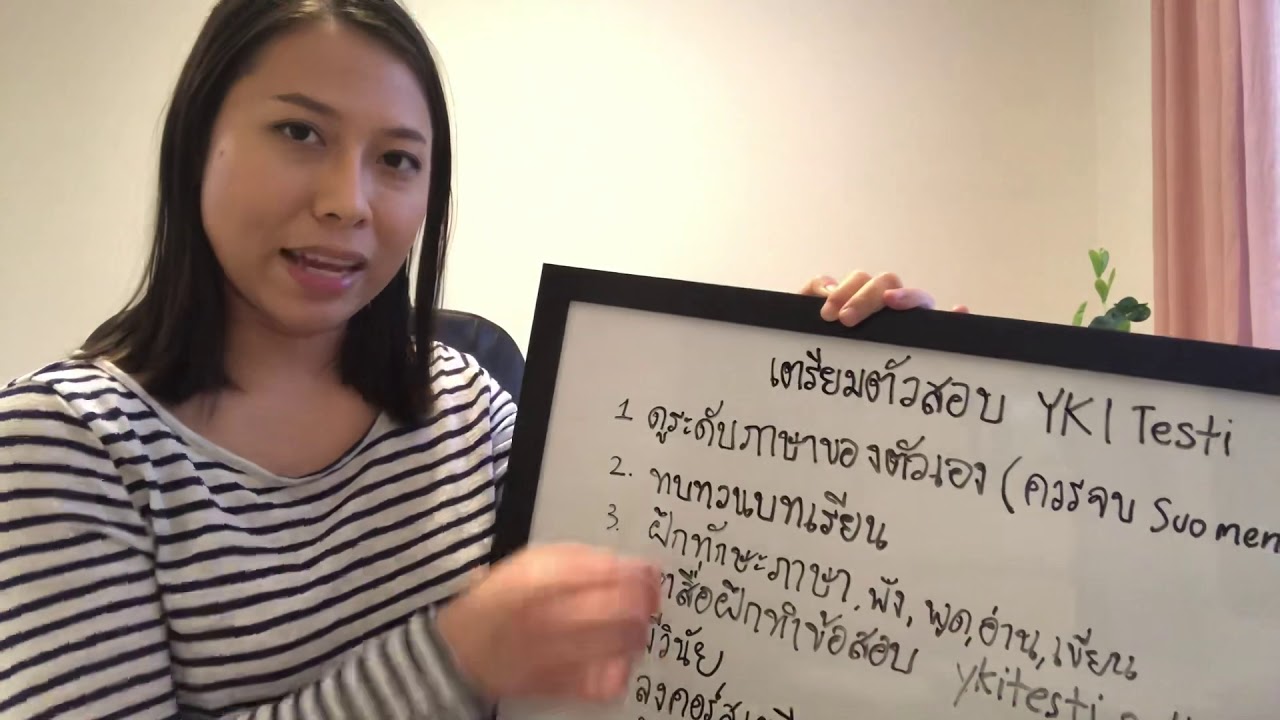 เตรียมตัวสอบ YKI Testi
1 ดูระดับภาษาของตัวเอง (ควรจบ Suomen
2. ทบทวนบทเรียน
3. ฝึกทักษะภาษา, ฟัง, พูด, อ่าน, เขียน
สื่อฝึกทำข้อสอบ ykitesti
มีวินัย
ลงคอร์ส